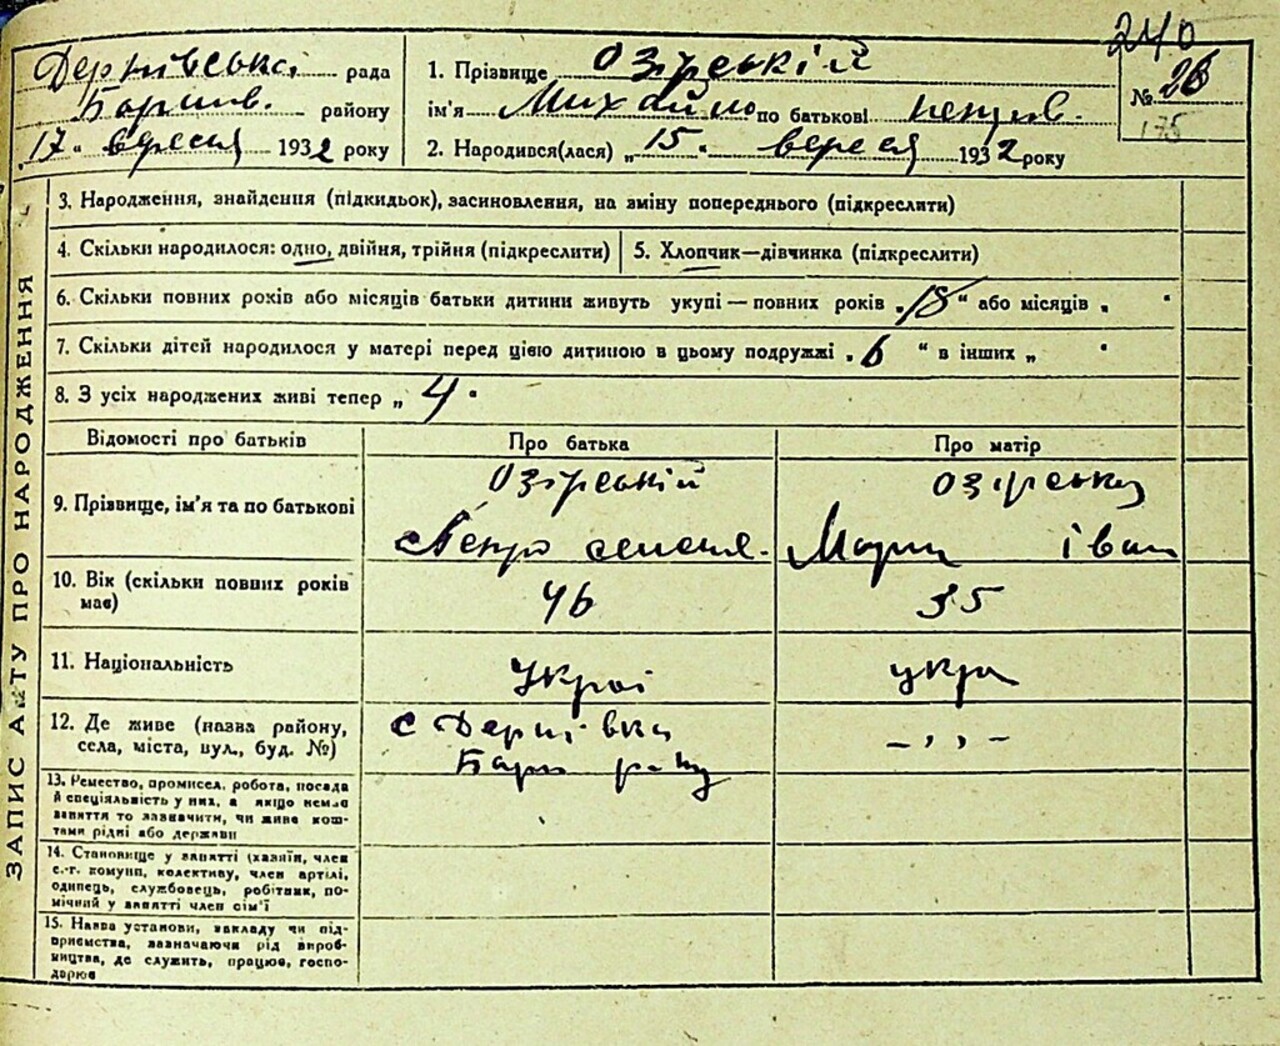 240
Дернівська рада
Бариш. району
„17“ вересня 1932 року
1. Прізвище Озірській
ім'я Михайло по батькові петров.
2. Народився(лася) „15. вересня 1932 року
№ 26
175
ЗАПИС АКТУ ПРО НАРОДЖЕННЯ
3. Народження, знайдення (підкидьок), засиновлення, на зміну попереднього (підкреслити)
4. Скільки народилося: одно, двійня, трійня (підкреслити)
5. Хлопчик—дівчинка (підкреслити)
6. Скільки повних років або місяців батьки дитини живуть укупі — повних років „18“ або місяців „ "
7. Скільки дітей народилося у матері перед цією дитиною в цьому подружжі „6 “ в інших „ "
8. З усіх народжених живі тепер „ 4 "
Відомості про батьків
Про батька
Про матір
9. Прізвище, ім'я та по батькові
Озірській
Петро семеня.
Озірська
Мари іван
10. Вік (скільки повних років має)
46
35
11. Національність
Украі
укра
12. Де живе (назва району,
села, міста, вул., буд. №)
с Дернівка
Бари р-ну
– , , –
13. Ремество, промисел, робота, посада
й спеціяльність у них, а якщо немає
заняття то зазначити, чи живе кош-
тами рідні або держави
14. Становище у занятті (хазяїн, член
с.-г. комуни, колективу, член артілі,
одинець, службовець, робітник, по-
мічний у занятті член сім'ї
15. Назва установи, закладу чи під-
приємства, зазначаючи рід вироб-
ництва, де служить, працює, госпо-
дарює